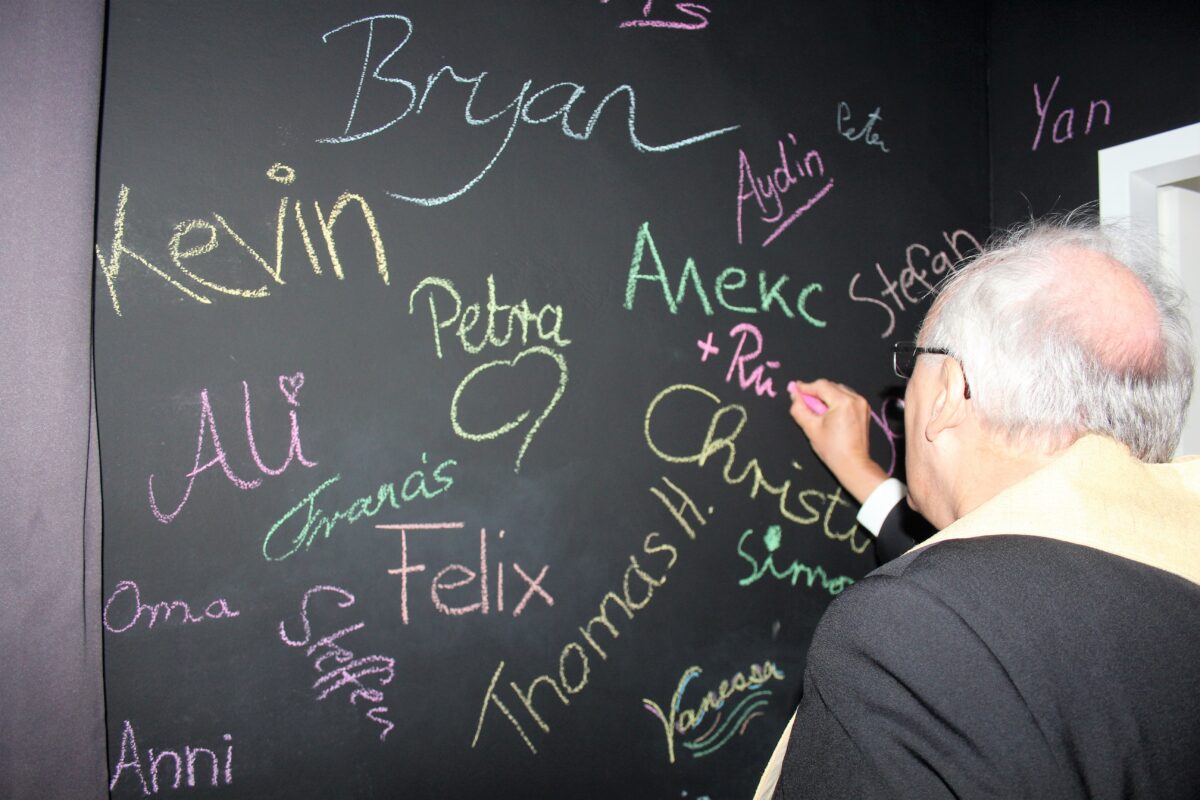 Bryan
Peter
Yan
Aydin
Kevin
Алекс
Stefan
Petra
+ Rü
Ali
Christi
Franás
Thomas H.
Felix
Simo
Oma
Steffen
Vanessa
Anni